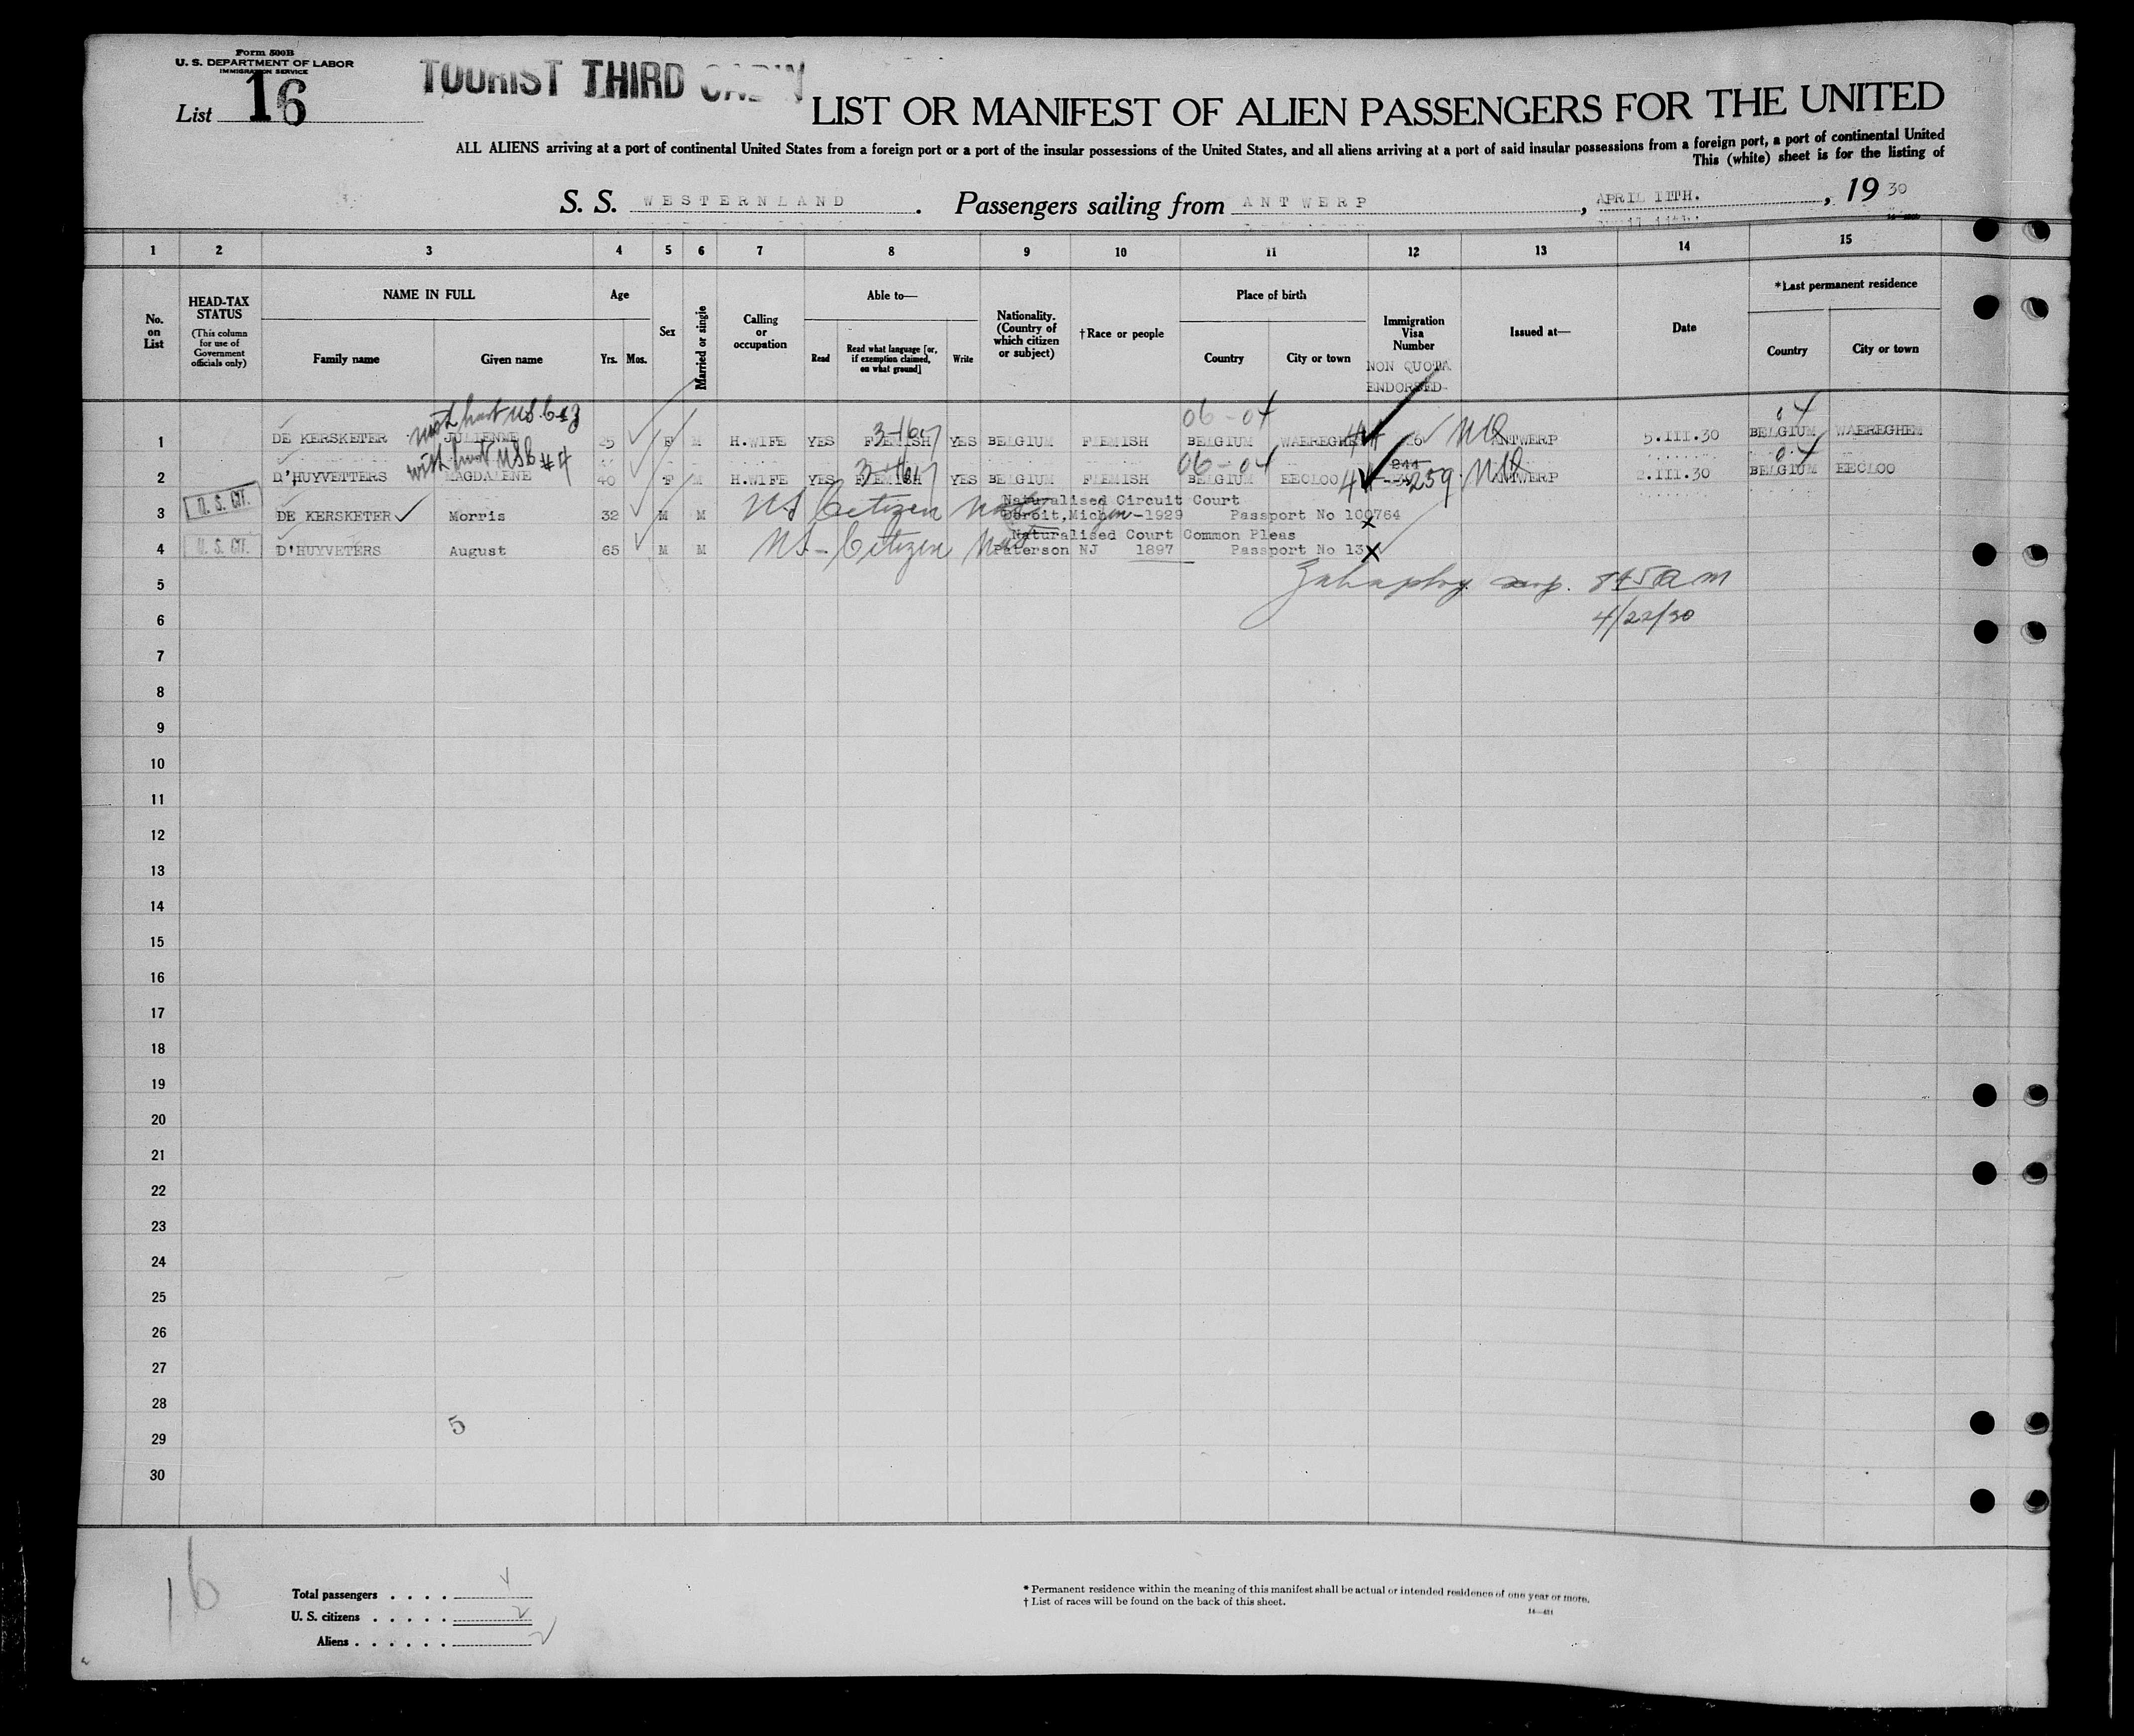 Form 500B
U. S. DEPARTMENT OF LABOR
IMMIGRATION SERVICE
List 16
TOURIST THIRD CABIN
LIST OR MANIFEST OF ALIEN PASSENGERS FOR THE UNITED
ALL ALIENS arriving at a port of continental United States from a foreign port or a port of the insular possessions of the United States, and all aliens arriving at a port of said insular possessions from a foreign port, a port of continental United
This (white) sheet is for the listing of
S. S. WESTERNLAND. Passengers sailing from ANTWERP, APRIL 11TH., 1930
1 2 3 4 5 6 7 8 9 10 11 12 13 14 15
No. on List
HEAD-TAX STATUS
(This column for use of Government officials only)
NAME IN FULL
Family name Given name
Age
Yrs. Mos.
Sex
Married or single
Calling or occupation
Able to—
Read
Read what language [or, if exemption claimed, on what ground]
Write
Nationality. (Country of which citizen or subject)
†Race or people
Place of birth
Country City or town
Immigration Visa Number
NON QUOTA
ENDORSED
Issued at—
Date
*Last permanent residence
Country City or town
06-04 04
1 DE KERSKETER JULIENNE 25 F M H.WIFE YES FLEMISH YES BELGIUM FLEMISH BELGIUM WAEREGHEM ANTWERP 5.III.30 BELGIUM WAEREGHEM
with husb USC #4
06-04 04
2 D'HUYVETTERS MAGDALENE 40 F M H.WIFE YES FLEMISH YES BELGIUM FLEMISH BELGIUM EECLOO 244 259 ANTWERP 2.III.30 BELGIUM EECLOO
U. S. CIT.
Naturalised Circuit Court
3 DE KERSKETER Morris 32 M M US Citizen Detroit, Michen-1929 Passport No 100764
U. S. CIT.
Naturalised Court Common Pleas
4 D'HUYVETERS August 65 M M US-Citizen Paterson NJ 1897 Passport No 13
5 845 am
6 4/22/30
7
8
9
10
11
12
13
14
15
16
17
18
19
20
21
22
23
24
25
26
27
28
5
29
30
16
Total passengers . . . .
U. S. citizens . . . . . 2
Aliens . . . . . . 2
* Permanent residence within the meaning of this manifest shall be actual or intended residence of one year or more.
† List of races will be found on the back of this sheet.